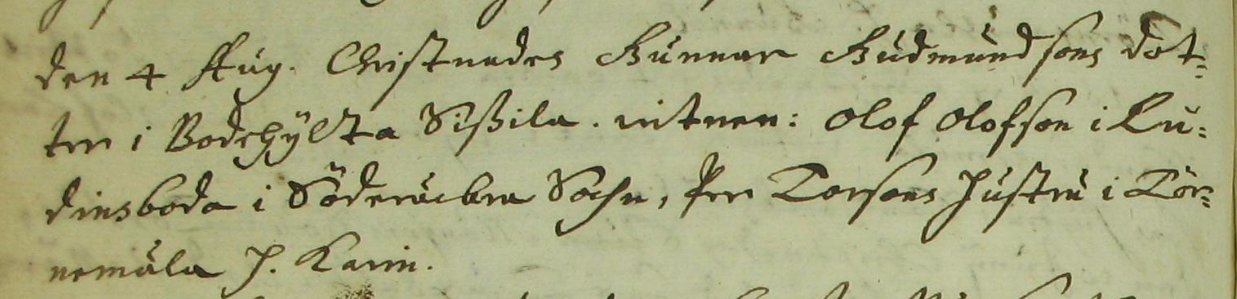 den 4 Aug. Christnades Gunnar Gudmundsons dot-
ter i Bodehÿlta Sißila. witnen: Olof Olofson i Lu-
dinsboda i Söderåckra Sochn, Per Torsons hustru i Tör-
nemåla h. Karin.